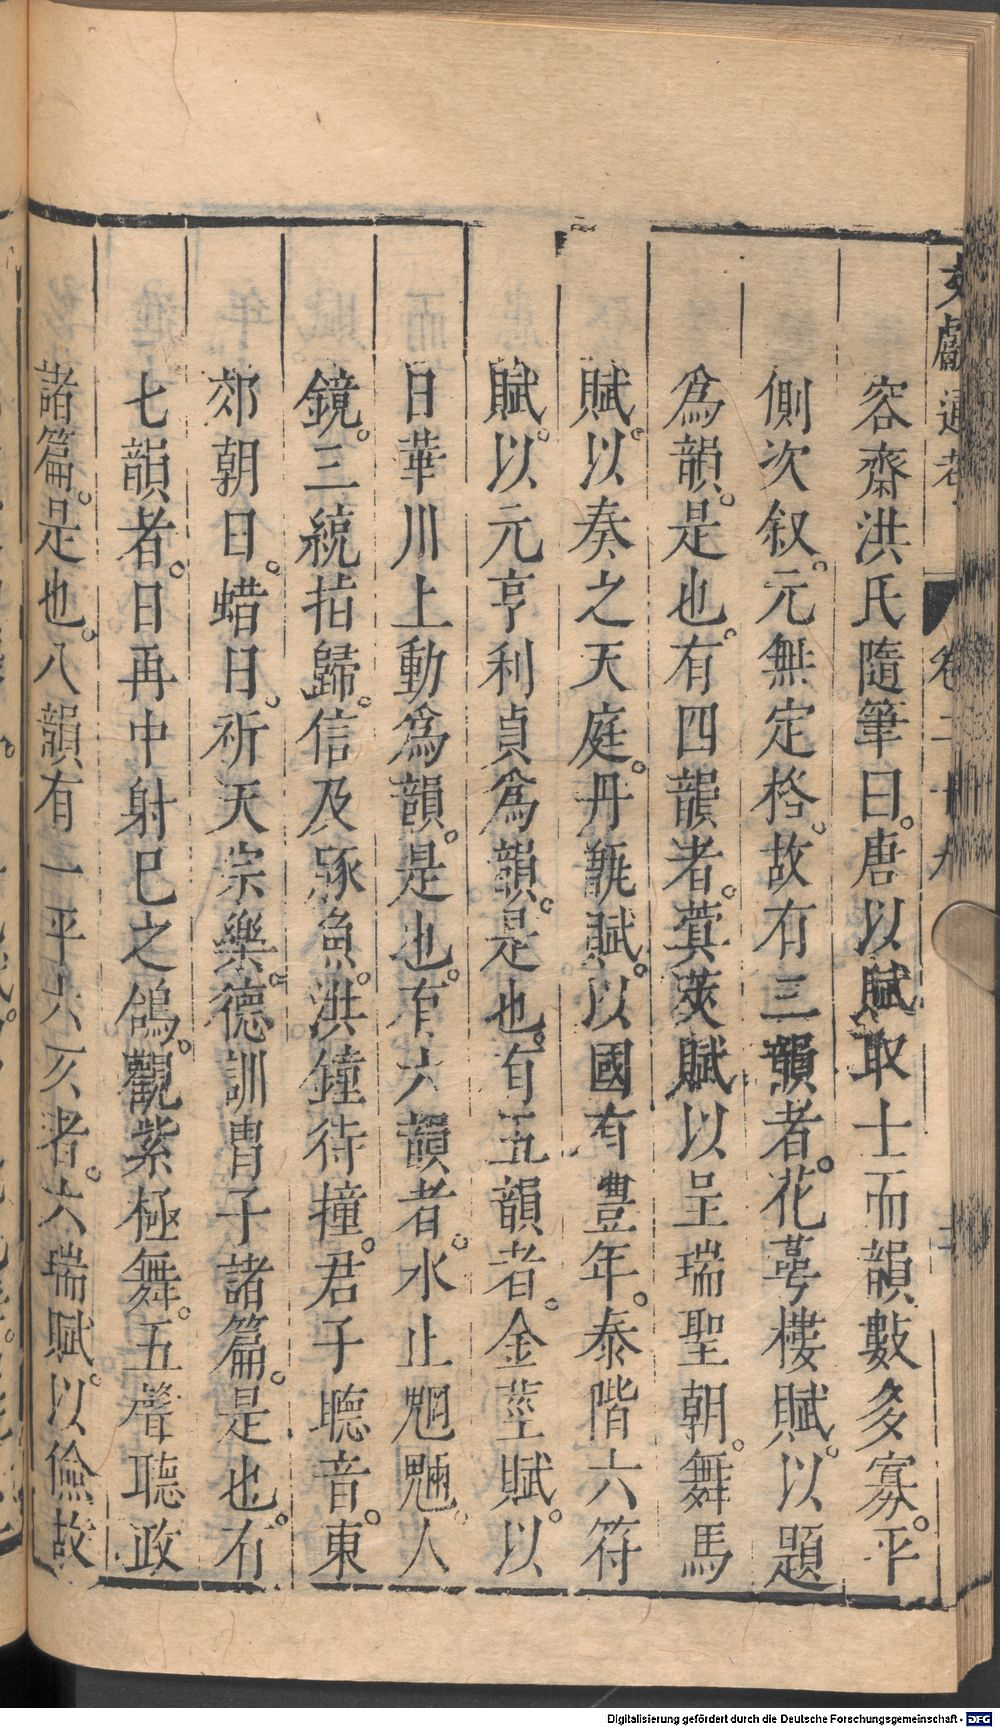 文獻通考 卷二十九
容齋洪氏隨筆曰。唐以賦取士而韻數多寡。平
側次叙。元無定格。故有三韻者。花萼樓賦。以題
爲韻。是也。有四韻者。蓂莢賦以呈瑞聖朝。舞馬
賦。以奏之天庭。丹甑賦。以國有豐年。泰階六符
賦。以元亨利貞爲韻。是也。有五韻者。金莖賦。以
日華川上動爲韻。是也。有六韻者。水止魍魎。人
鏡。三統指歸。信及豚魚。洪鐘待撞。君子聽音。東
郊朝日。蜡日。祈天宗樂。德訓胄子諸篇。是也。有
七韻者。日再中射已之鵠。觀紫極舞。五聲聽政
諸篇。是也。八韻有一平六仄者。六瑞賦。以儉故
Digitalisierung gefördert durch die Deutsche Forschungsgemeinschaft - DFG